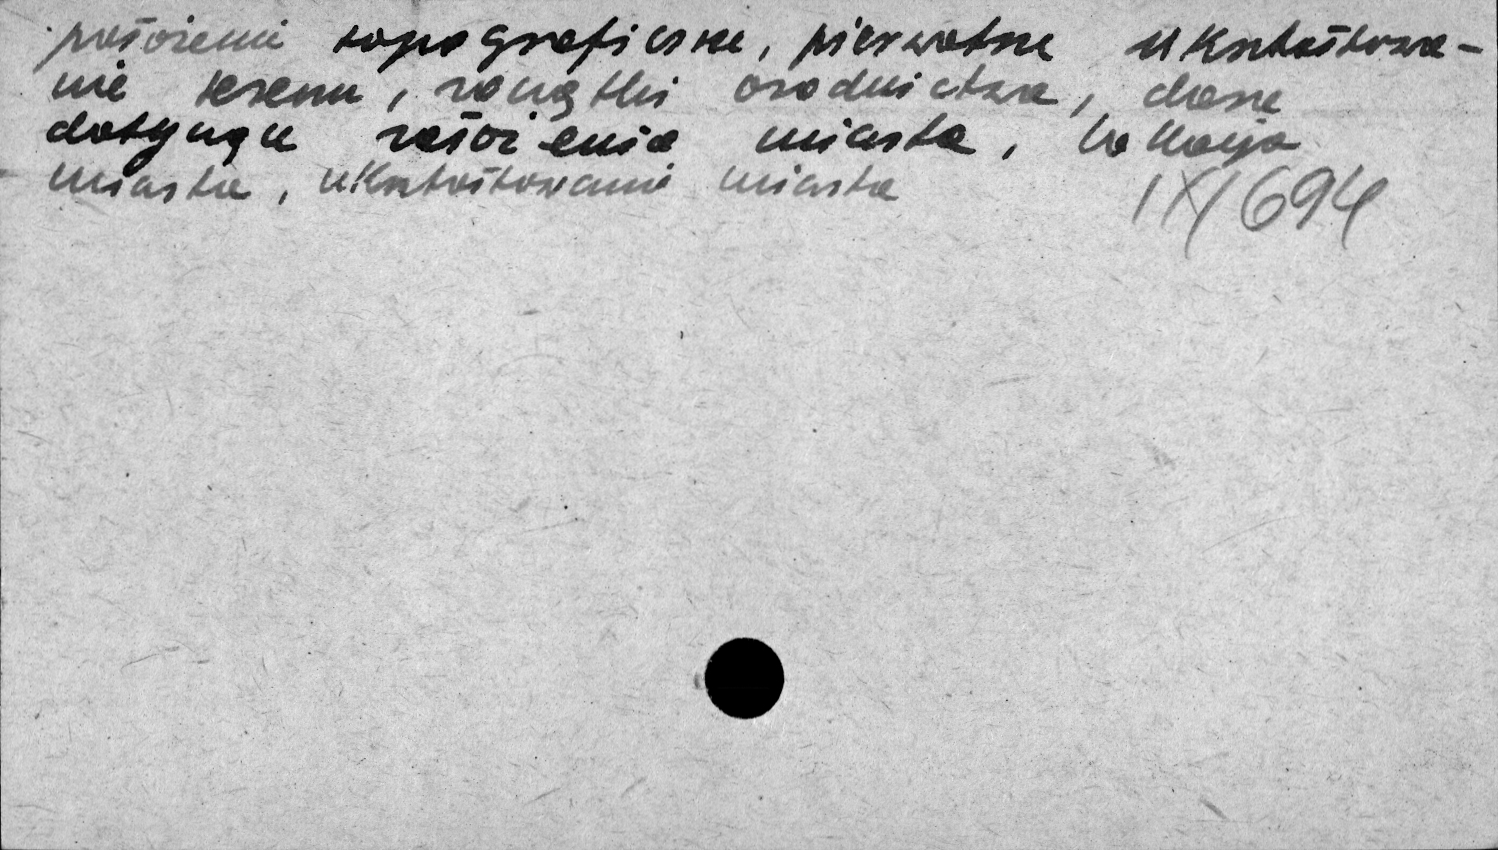 położenie topograficzne, pierwotne ukształtowa-
nie terenu, początki osadnictwa, dane
dotyczące założenia miasta, lokacja
miasta, ukształtowanie miasta
IX/694